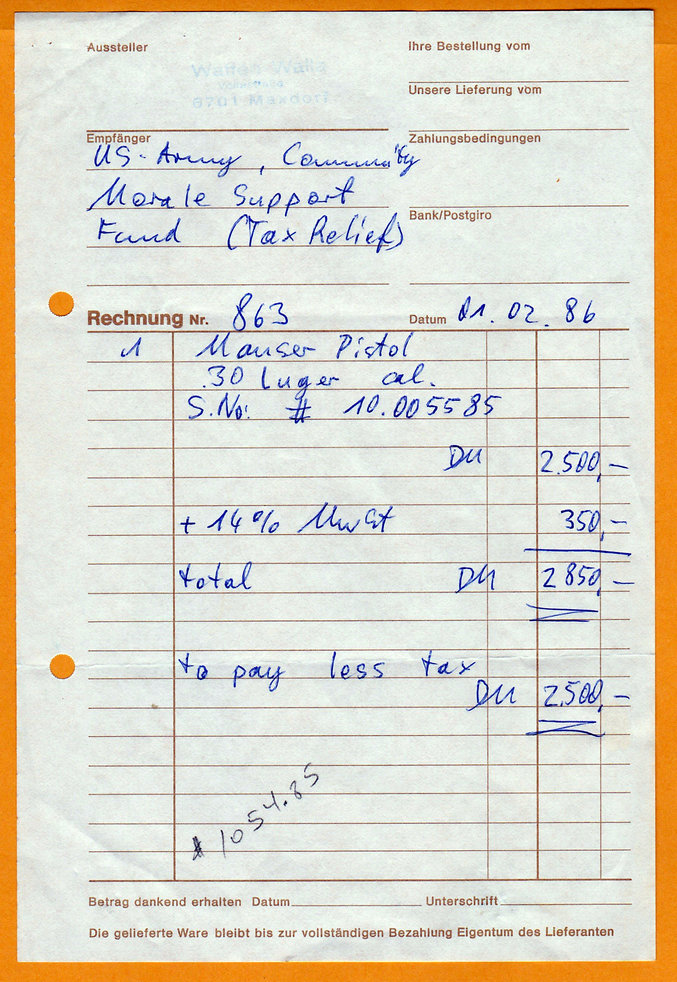 Aussteller
Ihre Bestellung vom
Waffen
6701 Maxdorf
Unsere Lieferung vom
Empfänger
Zahlungsbedingungen
US-Army, Community
Morale Support
Fund (Tax Relief)
Bank/Postgiro
Rechnung Nr. 863 Datum 01.02.86
1 Mauser Pistol
.30 Luger cal.
S.No: # 10.005585
DM 2.500,—
+ 14% MwSt 350,—
total DM 2 850,—
to pay less tax
DM 2.500,—
$ 1054.85
Betrag dankend erhalten Datum Unterschrift
Die gelieferte Ware bleibt bis zur vollständigen Bezahlung Eigentum des Lieferanten